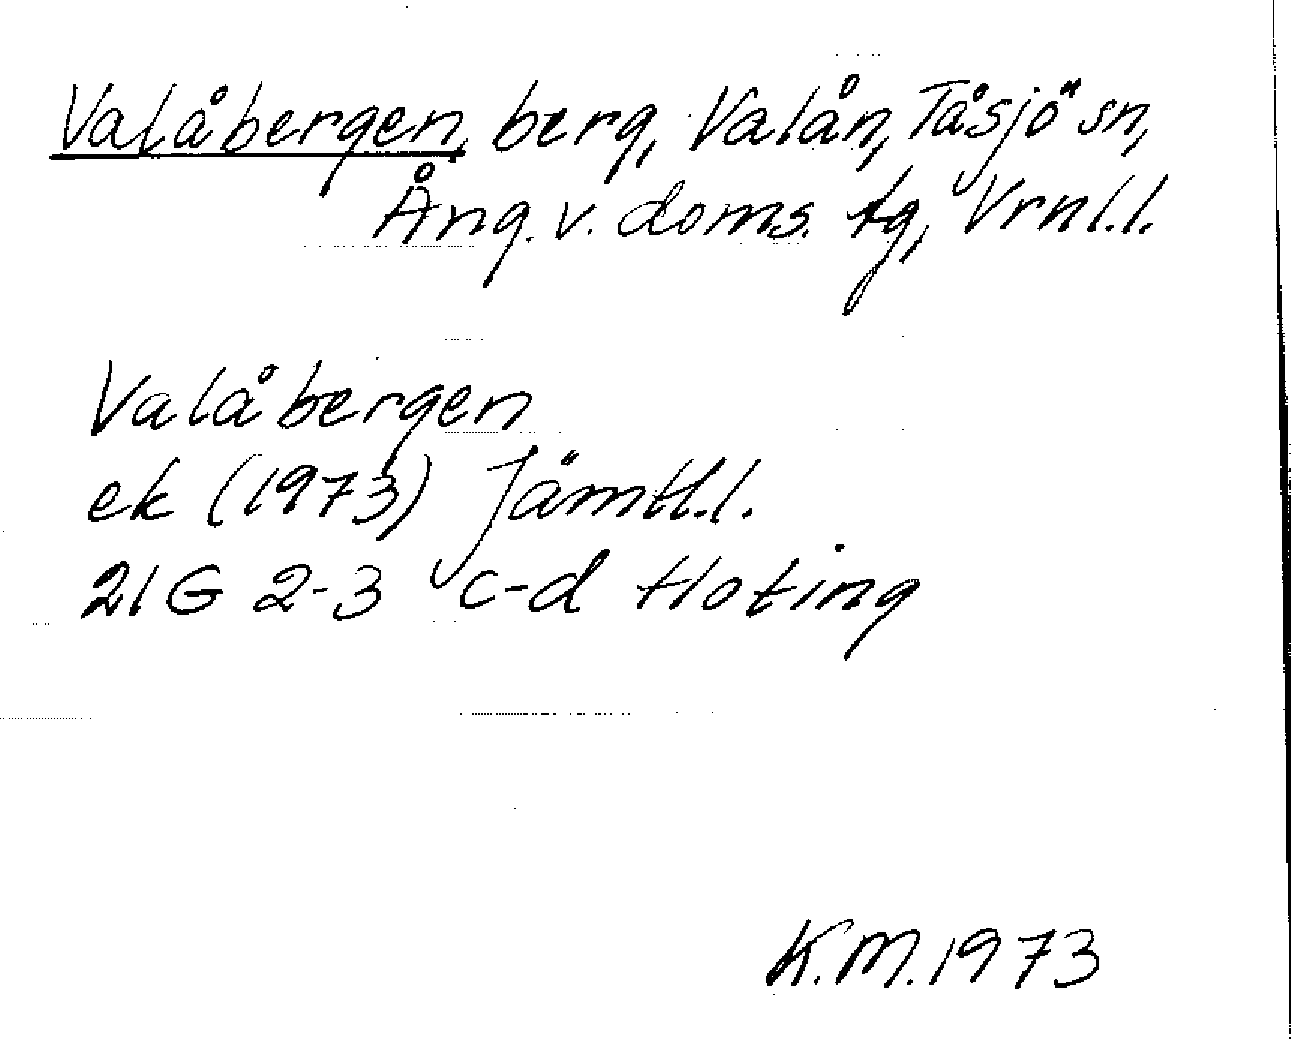 Valåbergen, berg, Valån, Tåsjö sn,
Ång. v. doms. tg, Vrnl.l.
Valåbergen
ek (1973) Jämtl.l.
21G 2-3 c-d Hoting
K.M.1973